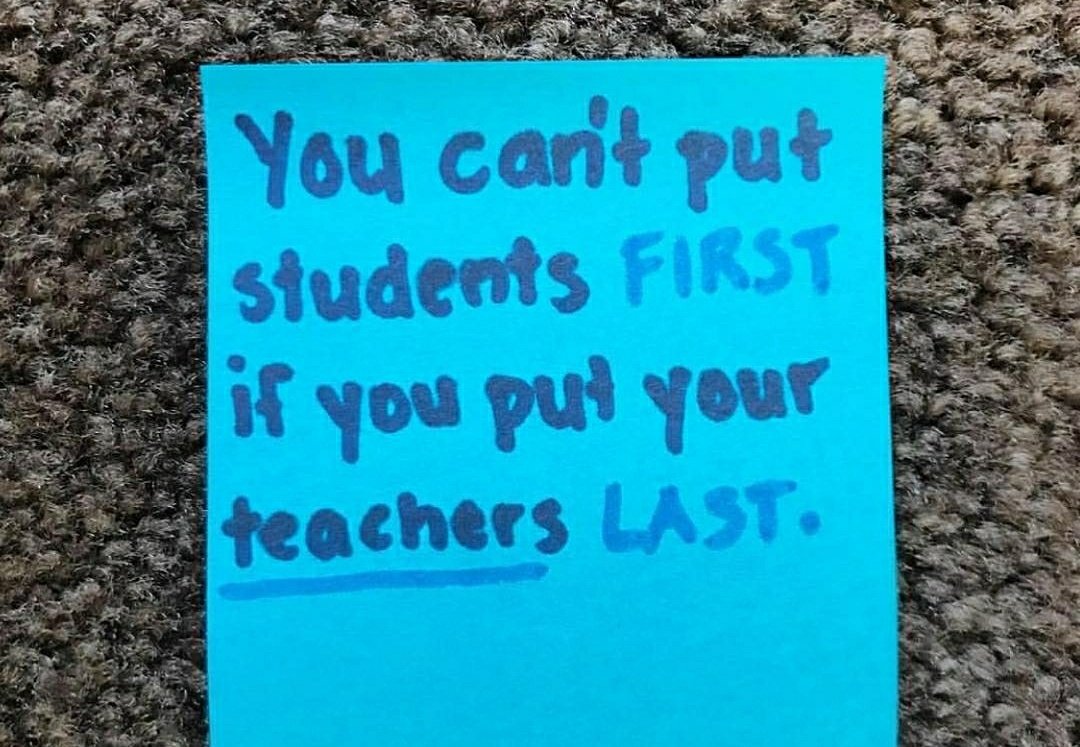 You can't put
students FIRST
if you put your
teachers LAST.